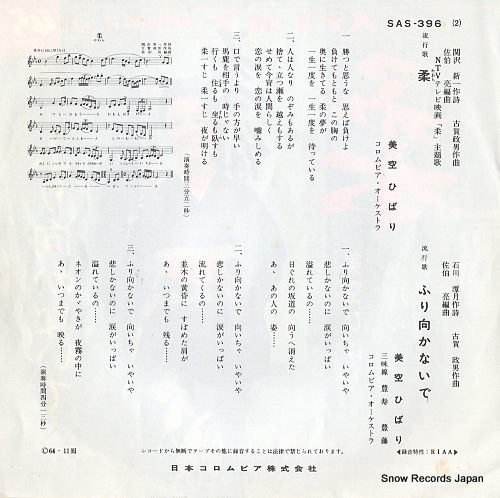 SAS-396 (2)
流行歌
柔
関沢 新一作詩
古賀政男作曲
佐伯 亮編曲
NTVテレビ映画「柔」主題歌
美空ひばり
コロムビア・オーケストラ
一、勝つと思うな 思えば負けよ
負けてもともと この胸の
奥に生きてる 柔の夢が
一生一度を 一生一度を 待っている
二、人は人なり のぞみもあるが
捨てゝ立つ瀬を 越えもする
せめて今宵は人間らしく
恋の涙を 恋の涙を 噛みしめる
三、口で言うより 手の方が早い
馬鹿を相手の 時じゃない
行くも 住るも 坐るも臥すも
柔一すじ 柔一すじ 夜が明ける
(演奏時間三分五二秒)
柔
流行歌
ふり向かないで
石川 潭月作詩
古賀 政男作曲
佐伯 亮編曲
美空ひばり
三味線 豊寿 豊藤
コロムビア・オーケストラ
一、ふり向かないで 向いちゃ いやいや
悲しかないのに 涙がいっぱい
溢れているの……
日ぐれの坂道の 向うへ消えた
あゝ あの人の 姿……
二、ふり向かないで 向いちゃ いやいや
悲しかないのに 涙がいっぱい
流れてくるの……
並木の黄昏に すぼめた肩が
あゝ いつまでも 残る……
三、ふり向かないで 向いちゃ いやいや
悲しかないのに 涙がいっぱい
溢れているの……
ネオンのかゞやきが 夜霧の中に
あゝ いつまでも 映る……
(演奏時間四分一三秒)
©64・11
レコードから無断でテープその他に録音することは法律で禁じられております。
◀録音特性:RIAA▶
日本コロムビア株式会社
Snow Records Japan